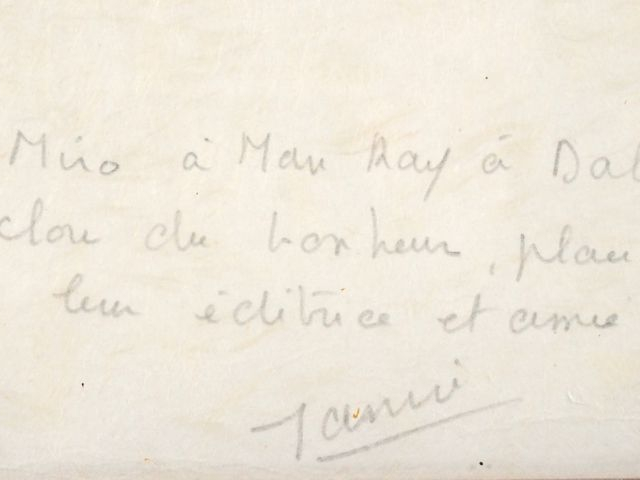 Miro à Man Ray à Dal
clou du bonheur, plan
leur éditrice et amie